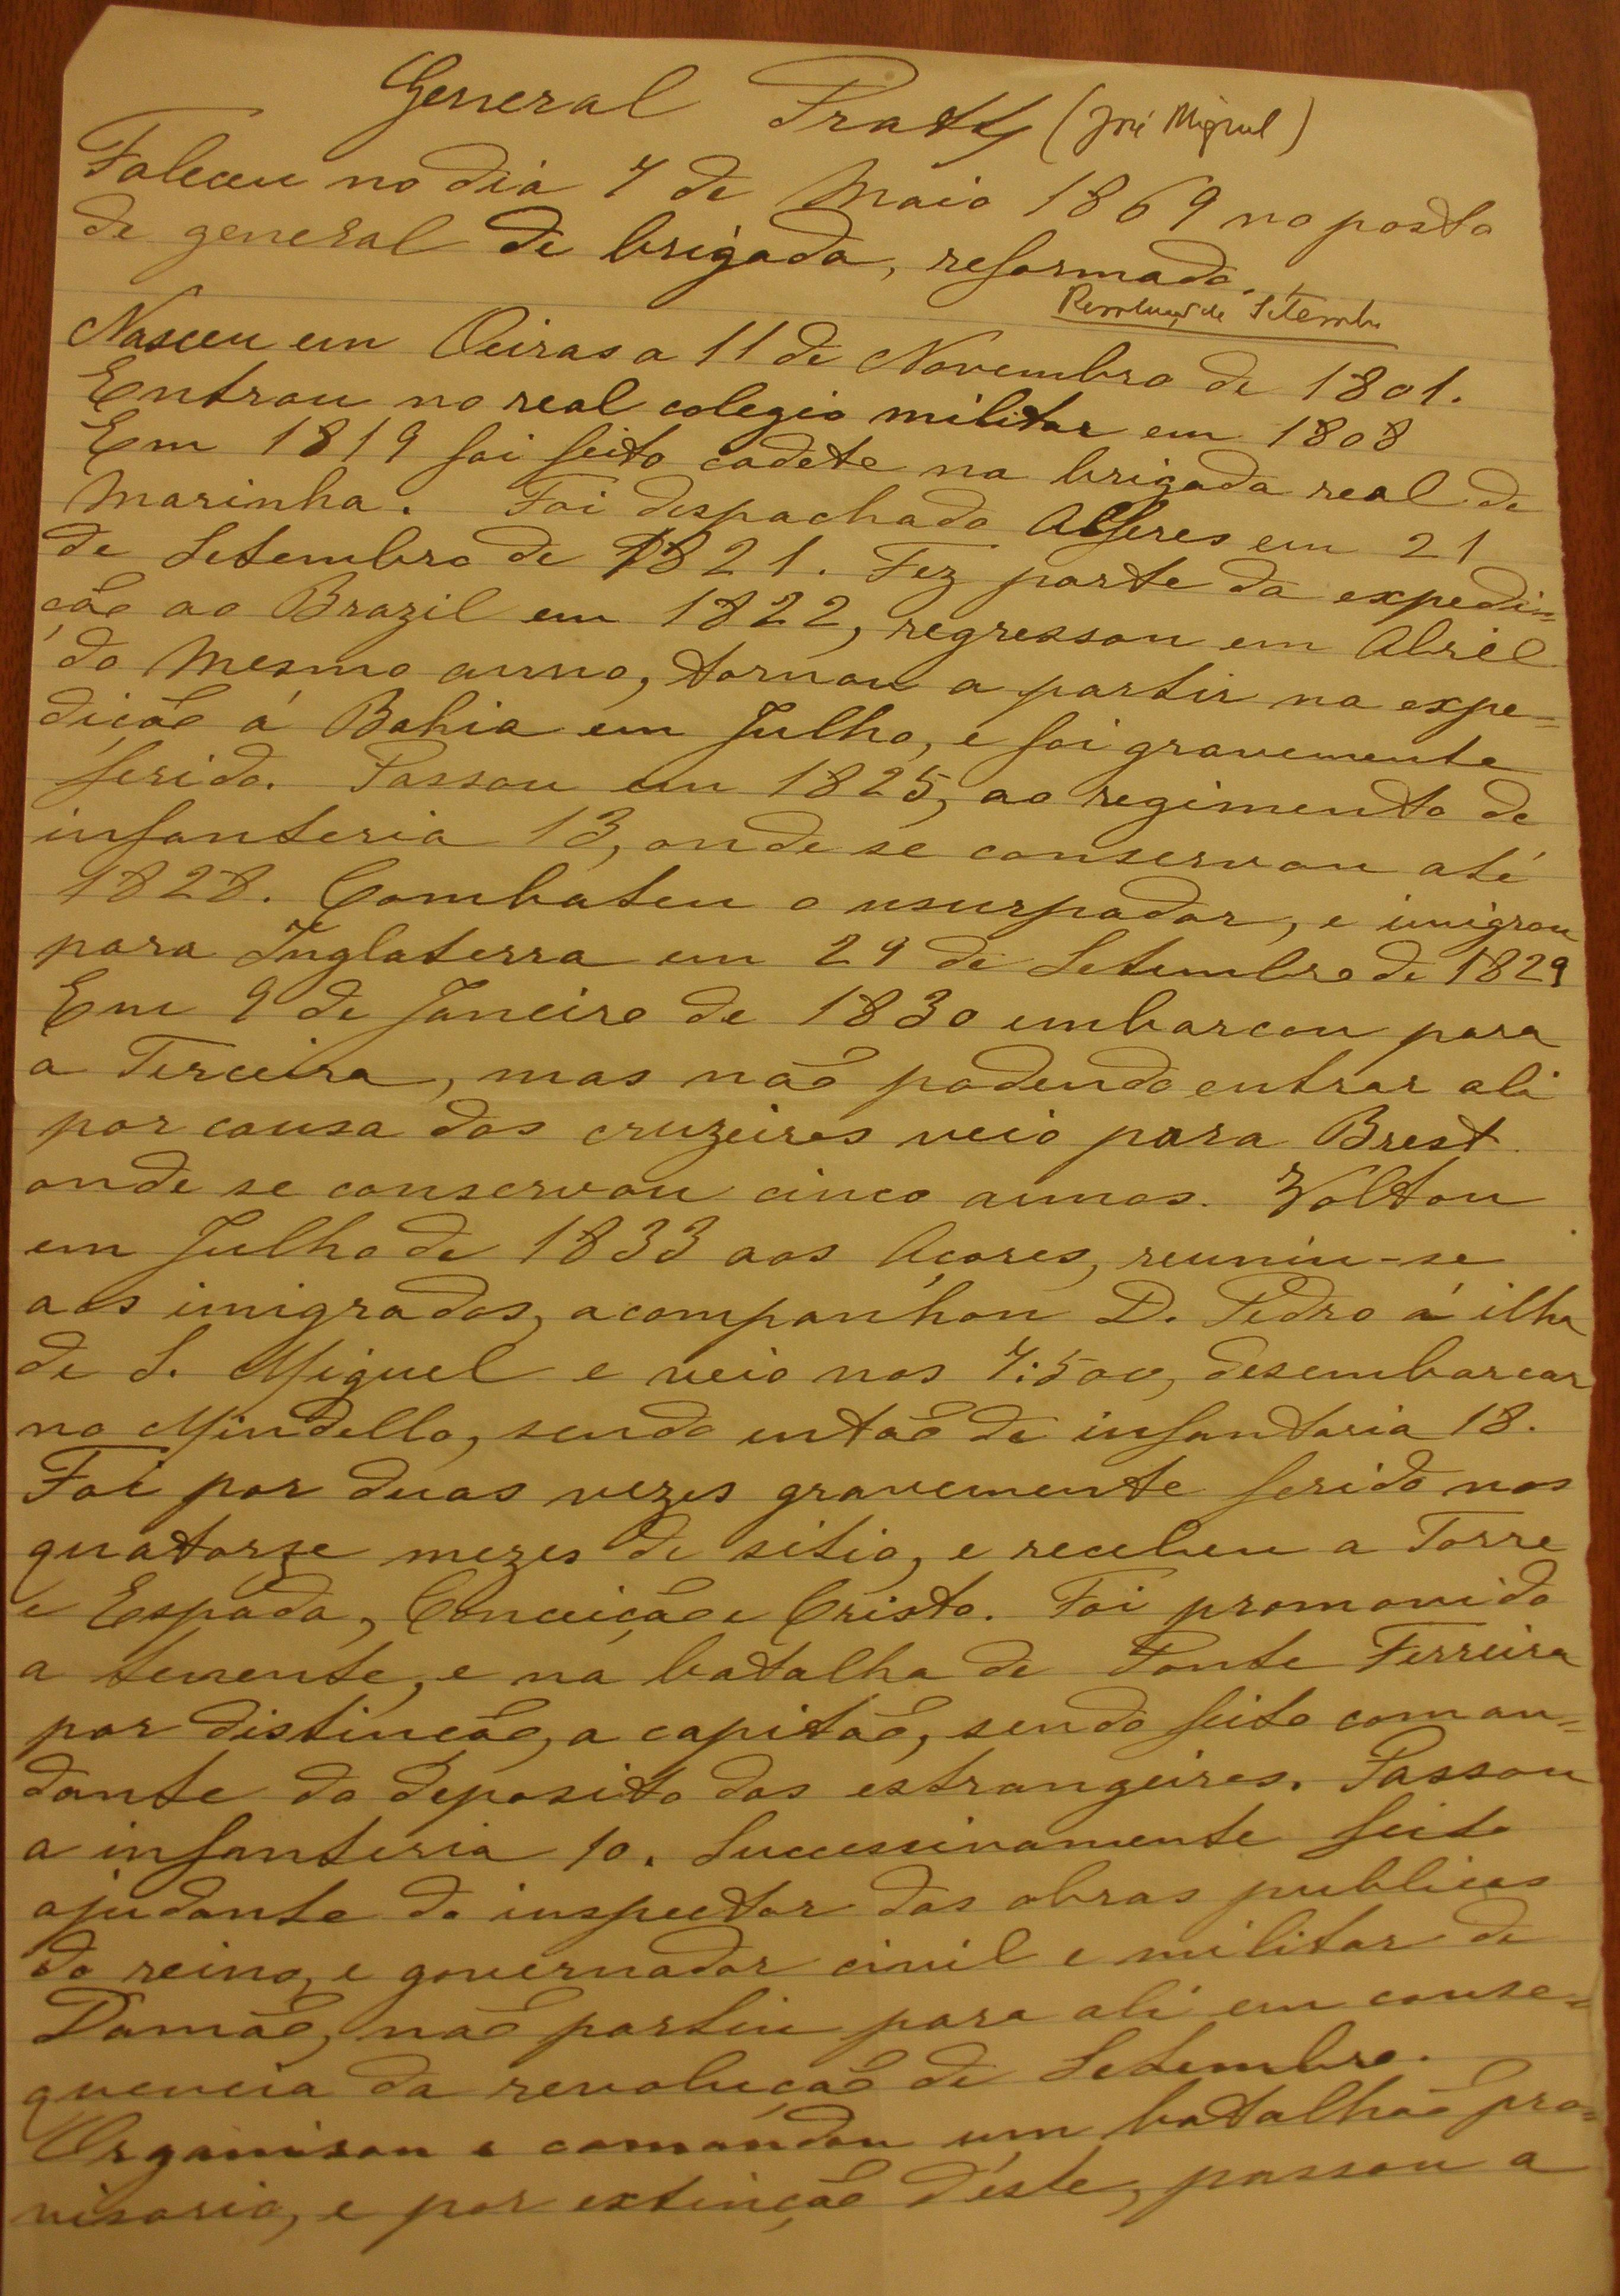 General Pratty (José Miguel)
Faleceu no dia 7 de Maio 1869 no posto
de general de brigada, reformado.
Revolução de Setembro
Nasceu em Oeiras a 11 de Novembro de 1801.
Entrou no real colegio militar em 1808
Em 1819 foi feito cadete na brigada real de
Marinha. Foi despachado Alferes em 21
de Setembro de 1821. Fez parte da expedi=
ção ao Brazil em 1822, regressou em Abril
do mesmo anno, tornou a partir na expe=
dição á Bahia em Julho, e foi gravemente
ferido. Passou em 1825, ao regimento de
infanteria 13, onde se conservou até
1828. Combateu o usurpador, e imigrou
para Inglaterra em 29 de Setembro de 1829
Em 9 de Janeiro de 1830 embarcou para
a Terceira, mas não podendo entrar ali
por causa dos cruzeiros veio para Brest
onde se conservou cinco annos. Voltou
em Julho de 1833 aos Açores, reuniu-se
aos imigrados, acompanhou D. Pedro á ilha
de S. Miguel e veio nos 7:500, desembarcar
no Mindello, sendo então de infantaria 18.
Foi por duas vezes gravemente ferido nos
quatorze mezes de sitio, e recebeu a Torre
e Espada, Conceição e Cristo. Foi promovido
a tenente, e na batalha de Ponte Ferreira
por distincão, a capitão, sendo feito coman=
dante do deposito dos estrangeiros. Passou
a infanteria 10. Successivamente feito
ajudante do inspector das obras publicas
do reino, e governador civil e militar de
Damão, não partiu para ali em conse=
quencia da revolução de Setembro.
Organisou e comandou um batalhão pro=
visorio, e por extinção d'éste, passou a